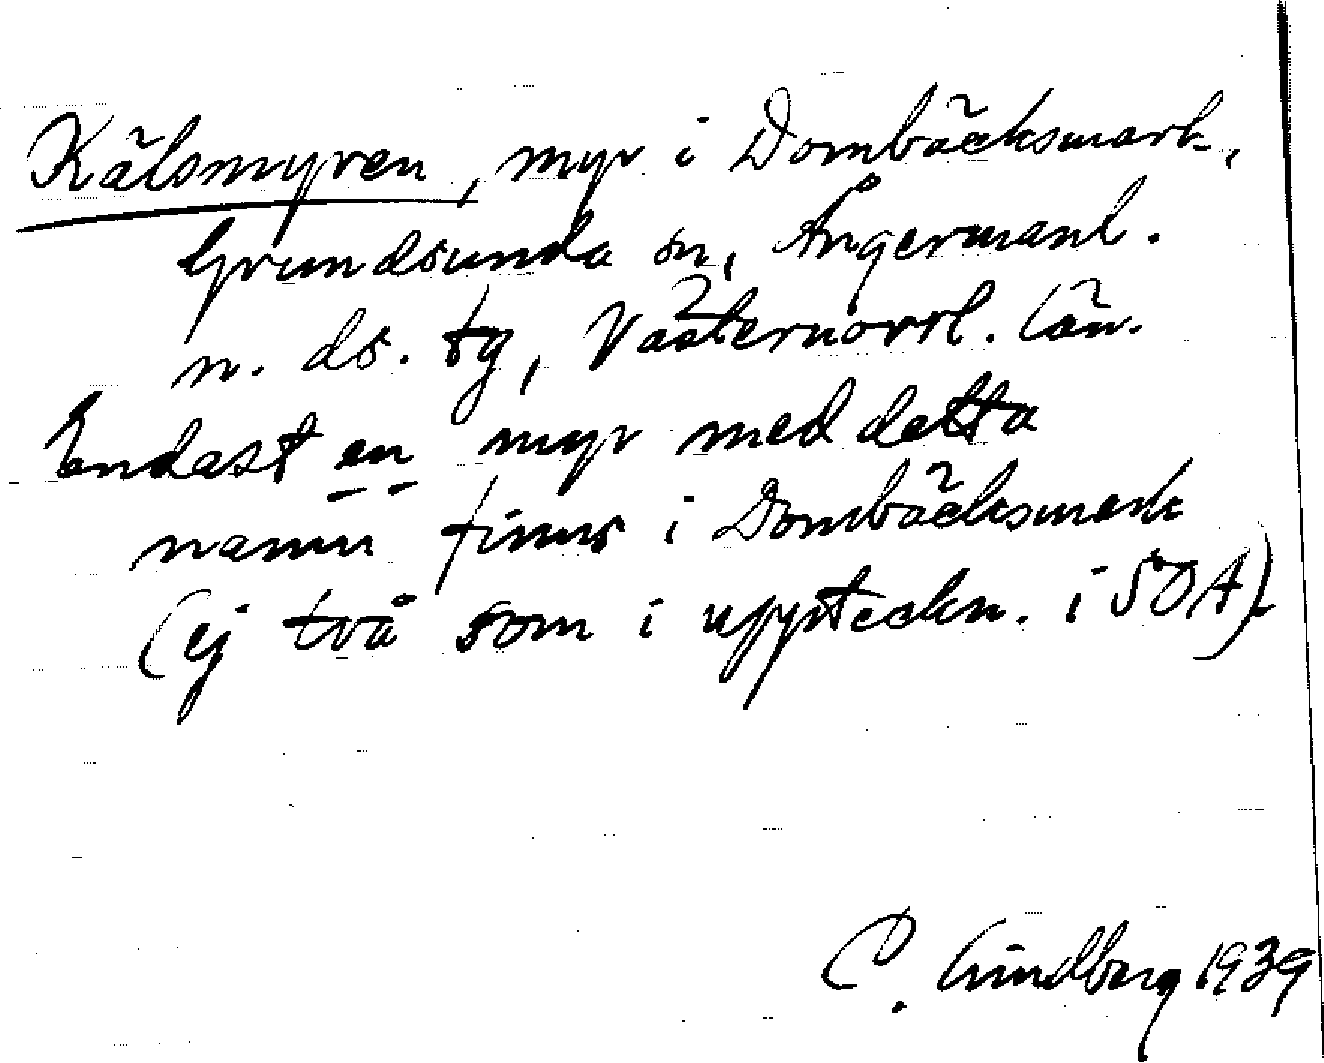 Kälsmyren, myr i Dombäcksmark,
Grundsunda sn, Ångermanl.
n. ds. tg, Västernorrl. län.
Endast en myr med detta
namn finns i Dombäcksmark
(ej två som i uppteckn. i SOA)
C. Lindberg 1939